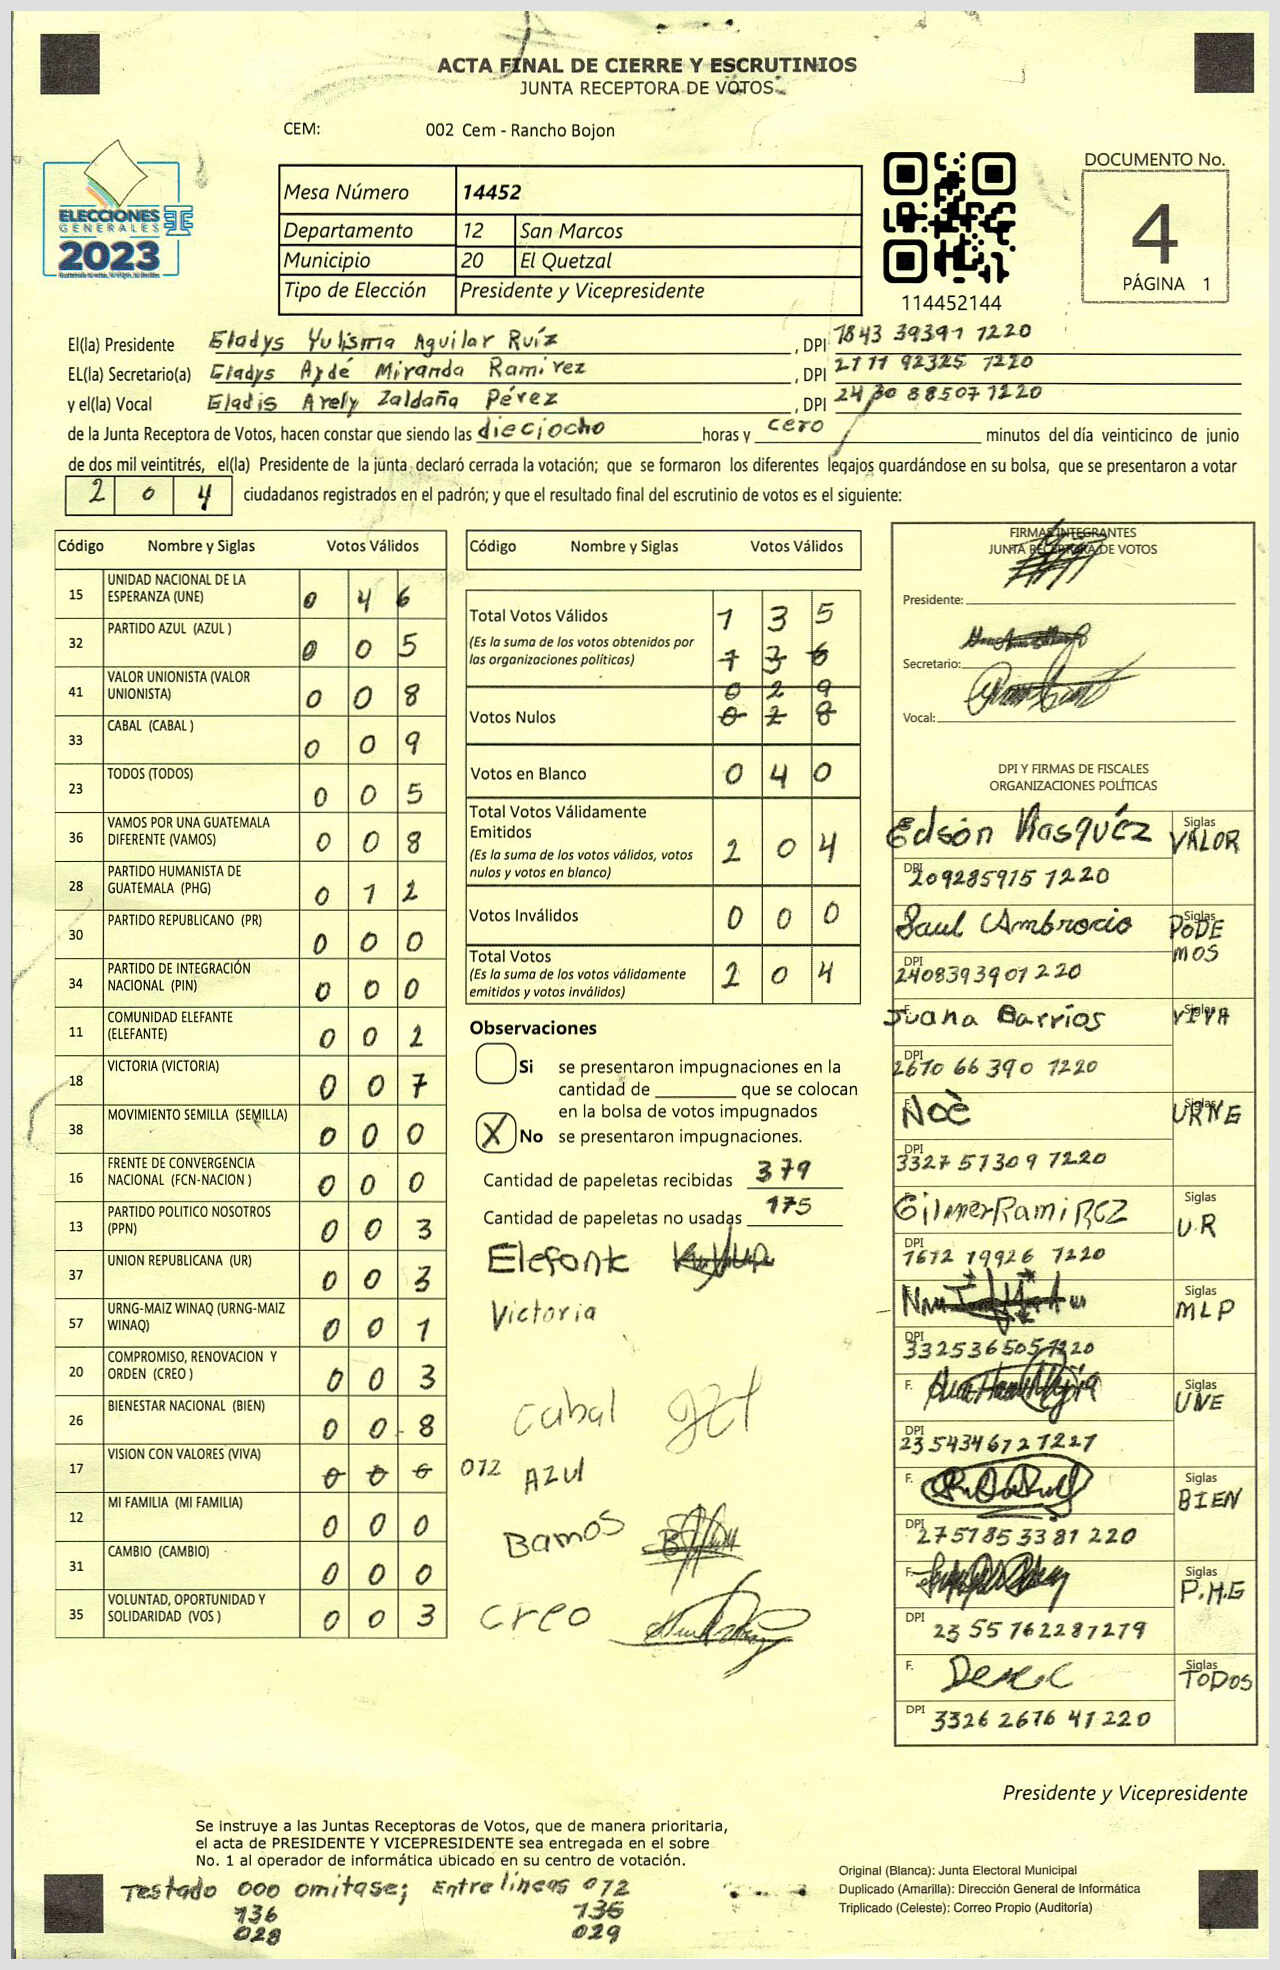 ACTA FINAL DE CIERRE Y ESCRUTINIOS
JUNTA RECEPTORA DE VOTOS
CEM: 002 Cem - Rancho Bojon
ELECCIONES
GENERALES
2023
Mesa Número 14452
Departamento 12 San Marcos
Municipio 20 El Quetzal
Tipo de Elección Presidente y Vicepresidente
114452144
DOCUMENTO No.
4
PÁGINA 1
El(la) Presidente Gladys Yulisma Aguilar Ruíz, DPI 1843 39391 1220
EL(la) Secretario(a) Gladys Aydé Miranda Ramirez, DPI 2177 92325 1220
y el(la) Vocal Gladis Arely Zaldaña Pérez, DPI 2430 88507 1220
de la Junta Receptora de Votos, hacen constar que siendo las dieciocho horas y cero minutos del día veinticinco de junio
de dos mil veintitrés, el(la) Presidente de la junta declaró cerrada la votación; que se formaron los diferentes legajos guardándose en su bolsa, que se presentaron a votar
2 0 4 ciudadanos registrados en el padrón; y que el resultado final del escrutinio de votos es el siguiente:
Código Nombre y Siglas Votos Válidos
15 UNIDAD NACIONAL DE LA ESPERANZA (UNE) 0 4 6
32 PARTIDO AZUL (AZUL ) 0 0 5
41 VALOR UNIONISTA (VALOR UNIONISTA) 0 0 8
33 CABAL (CABAL ) 0 0 9
23 TODOS (TODOS) 0 0 5
36 VAMOS POR UNA GUATEMALA DIFERENTE (VAMOS) 0 0 8
28 PARTIDO HUMANISTA DE GUATEMALA (PHG) 0 1 2
30 PARTIDO REPUBLICANO (PR) 0 0 0
34 PARTIDO DE INTEGRACIÓN NACIONAL (PIN) 0 0 0
11 COMUNIDAD ELEFANTE (ELEFANTE) 0 0 2
18 VICTORIA (VICTORIA) 0 0 7
38 MOVIMIENTO SEMILLA (SEMILLA) 0 0 0
16 FRENTE DE CONVERGENCIA NACIONAL (FCN-NACION ) 0 0 0
13 PARTIDO POLITICO NOSOTROS (PPN) 0 0 3
37 UNION REPUBLICANA (UR) 0 0 3
57 URNG-MAIZ WINAQ (URNG-MAIZ WINAQ) 0 0 1
20 COMPROMISO, RENOVACION Y ORDEN (CREO ) 0 0 3
26 BIENESTAR NACIONAL (BIEN) 0 0 8
17 VISION CON VALORES (VIVA) 0 0 0 012
12 MI FAMILIA (MI FAMILIA) 0 0 0
31 CAMBIO (CAMBIO) 0 0 0
35 VOLUNTAD, OPORTUNIDAD Y SOLIDARIDAD (VOS ) 0 0 3
Código Nombre y Siglas Votos Válidos
Total Votos Válidos 1 3 5
(Es la suma de los votos obtenidos por las organizaciones políticas) 1 3 6
0 2 9
Votos Nulos 0 2 8
Votos en Blanco 0 4 0
Total Votos Válidamente Emitidos
(Es la suma de los votos válidos, votos nulos y votos en blanco) 2 0 4
Votos Inválidos 0 0 0
Total Votos
(Es la suma de los votos válidamente emitidos y votos inválidos) 2 0 4
Observaciones
Si se presentaron impugnaciones en la
cantidad de ________ que se colocan
en la bolsa de votos impugnados
X No se presentaron impugnaciones.
Cantidad de papeletas recibidas 379
Cantidad de papeletas no usadas 175
Elefante
Victoria
Cabal
AZUl
Bamos
Creo
FIRMAS INTEGRANTES
JUNTA RECEPTORA DE VOTOS
Presidente:
Secretario:
Vocal:
DPI Y FIRMAS DE FISCALES
ORGANIZACIONES POLÍTICAS
Edsón Vasquéz Siglas VALOR
DPI 209285915 1220
Saul Ambrocio Siglas PODEMOS
DPI 2408393901220
Juana Barrios Siglas VIVA
DPI 2670 66 390 1220
Noè Siglas URNG
DPI 3327 57309 1220
Gilmer Ramirez Siglas U.R
DPI 1612 19926 1220
Siglas MLP
DPI 3325365051220
F. Siglas UNE
DPI 2354346721227
F. Siglas BIEN
DPI 2751853381 220
F. Siglas P.H.G
DPI 23 55 762281219
F. Siglas TODOS
DPI 3326 2676 41 220
Presidente y Vicepresidente
Se instruye a las Juntas Receptoras de Votos, que de manera prioritaria,
el acta de PRESIDENTE Y VICEPRESIDENTE sea entregada en el sobre
No. 1 al operador de informática ubicado en su centro de votación.
Testado 000 omitase; Entre líneas 012
136 135
028 029
Original (Blanca): Junta Electoral Municipal
Duplicado (Amarilla): Dirección General de Informática
Triplicado (Celeste): Correo Propio (Auditoría)